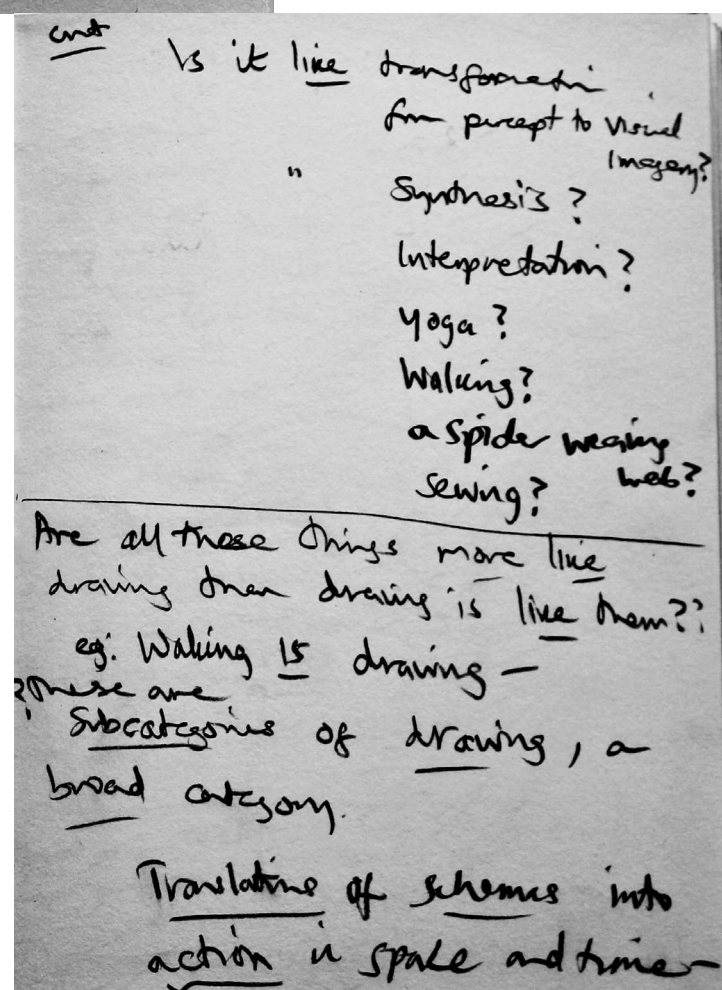 cont
Is it like transformation
from percept to visual
Imagery?
" Synthesis?
Interpretation?
Yoga?
Walking?
a spider weaving
web?
Sewing?
Are all these things more like
drawing than drawing is like them??
eg: Walking IS drawing —
? these are
Subcategories of drawing, a
broad category.
Translations of schemas into
action in space and time —